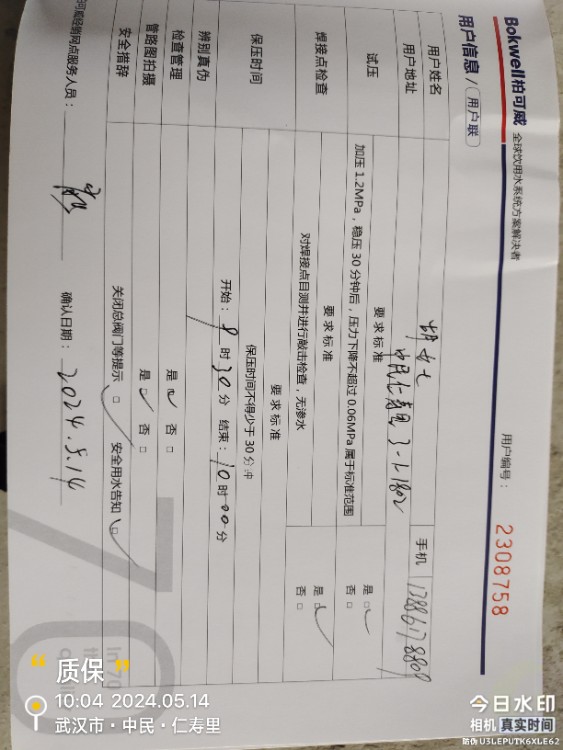 Bokwell柏可威 全球饮用水系统方案解决者
用户编号： 2308758
用户信息/（用户联）
用户姓名 胡女士 手机
用户地址 中民仁寿里3-1-1802
试压 要求标准
加压1.2MPa，稳压30分钟后，压力下降不超过0.06MPa属于标准范围 是□ 否□
焊接点检查 要求标准
对焊接点目测并进行敲击检查，无渗水 是□ 否□
保压时间 要求标准
保压时间不得少于30分钟
开始：9时30分 结束：10时00分
辨别真伪
检查管理 是□ 否□
管路图拍摄 是□ 否□
安全措辞 关闭总阀门等提示 □ 安全用水告知 □
可威经销网点服务人员： 确认日期： 2024.5.14
“质保”
10:04 2024.05.14
武汉市·中民·仁寿里
今日水印
相机 真实时间
防伪 U3LEPUTK6XLE62